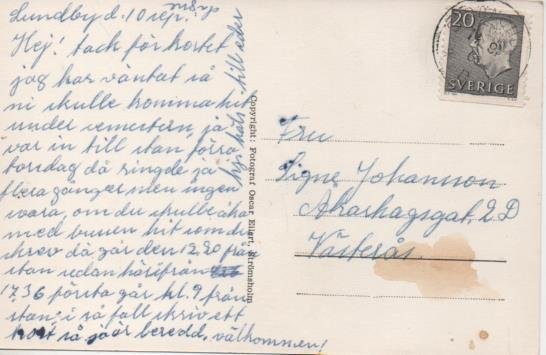 Lundby d. 10 sep.
Hej! tack för kortet
jag har väntat så
ni skulle komma hit
under semestern, ja
var in till stan förra
torsdag då ringde ja
flera gånger men ingen
svara, om du skulle åka
med bussen hit som du
skrev då går den 12,20 från
stan sedan härifrån
17,36 första går kl. 9 från
stan, i så fall skriv ett
kort så ja är beredd, välkommen!
till eder
Copyright: Fotograf Oscar Ellert, Strömsholm
20
SVERIGE
Fru
Signe Johansson
Åkarhagsgat. 2 D
Västerås.